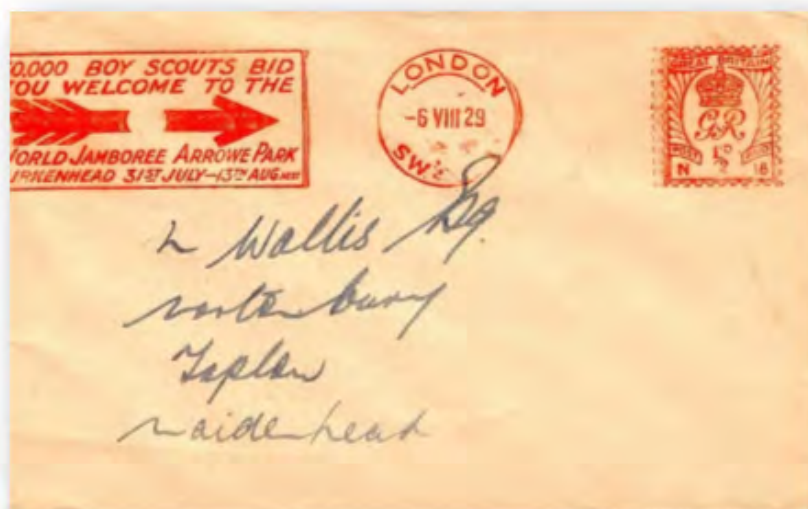 0,000 BOY SCOUTS BID
YOU WELCOME TO THE
WORLD JAMBOREE ARROWE PARK
IRKENHEAD 31ST JULY-13TH AUG.
LONDON
-6 VIII 29
SW1
GREAT BRITAIN
GR
POST PAID
½D
N 18
L Wallis Esq.
Taplow
Maidenhead